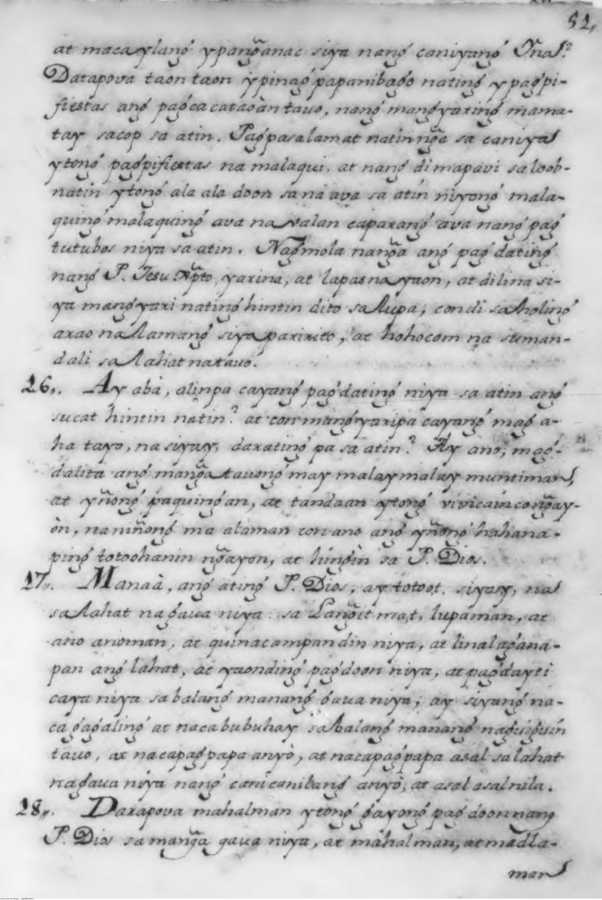 52,
at macaylang̃ ypang̃anac siya nang̃ caniyang̃ Yna.
Datapova taon taon ypinag̃papanibag̃o nating̃ ypag̃pi-
fiestas ang̃ pag̃cacatacoan tavo, nang̃ mang̃yating̃ mama-
tay sacop sa atin. Pag̃pasalamat natin ng̃a sa caniya
ytong̃ pag̃pifiestas na malaqui, at nang̃ di mapavi sa loob-
natin ytong̃ ala ala doon sa na ava sa atin niyong̃ mala-
quing̃ malaquing̃ ava na valan caparang̃ ava nang̃ pag̃
tutubos niya sa atin. Nag̃mola nang̃a ang̃ pag̃ dating̃
nang̃ P. Jesu Xpto, yarina, at lapas na yaon, at di lina si-
ya mang̃yari nating̃ hintin dito sa lupa, condi sa holing̃
arao na lamang̃ siya paririto, at hohocom na suman-
dali sa lahat na tavo.
26,. Ay abà, alinpa cayang̃ pag̃dating̃ niya sa atin ang̃
sucat hintin natin? at con mang̃yaripa cayang̃ mag̃ a-
ha tayo, na siyay, darating̃ pa sa atin? Ay ano, mag̃-
dalita ang̃ mang̃a tavong̃ may malay malay muntiman,
at yñong̃ paquing̃an, at tandaan ytong̃ vivicain co ng̃ay-
òn, na niñong̃ ma alaman con ano ang̃ yñong̃ hahana-
ping̃ totoohanin ng̃ayon, at hing̃in sa P. Dios.
27,. Manaà, ang̃ ating̃ P. Dios, ay totoot, siyay, na
sa lahat na g̃ava niya: sa Lang̃it mat, lupaman, at
ano anoman, at quinacampandin niya, at linalag̃ana-
pan ang̃ lahat, at yaonding̃ pag̃doon niya, at pag̃dayti
caya niya sa balang̃ manang̃ g̃ava niya; ay siyang̃ na-
cag̃ag̃aling̃ at nacabubuhay sa balang̃ manang̃ nag̃uig̃uin
tavo, at nacapag̃papa anyò, at nacapag̃papa asal sa lahat
nag̃ava niya nang̃ canicanilang̃ anyò, at asal asal nila.
28,. Datapova mahalman ytong̃ g̃ayong̃ pag̃ doon nang̃
P. Dios sa mang̃a gava niya, at mahalman, at madla-
man